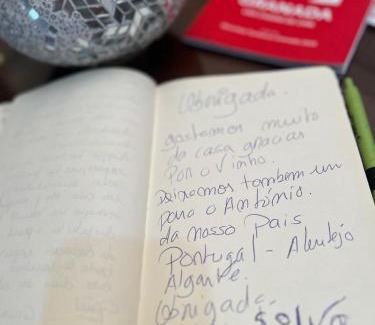 GRANADA
Obrigada.
gostamos muito
da casa gracias
Por o Vinho.
Deixamos tambem um
para o António.
da nosso Pais
Portugal - Alentejo
Algarve.
Obrigada.